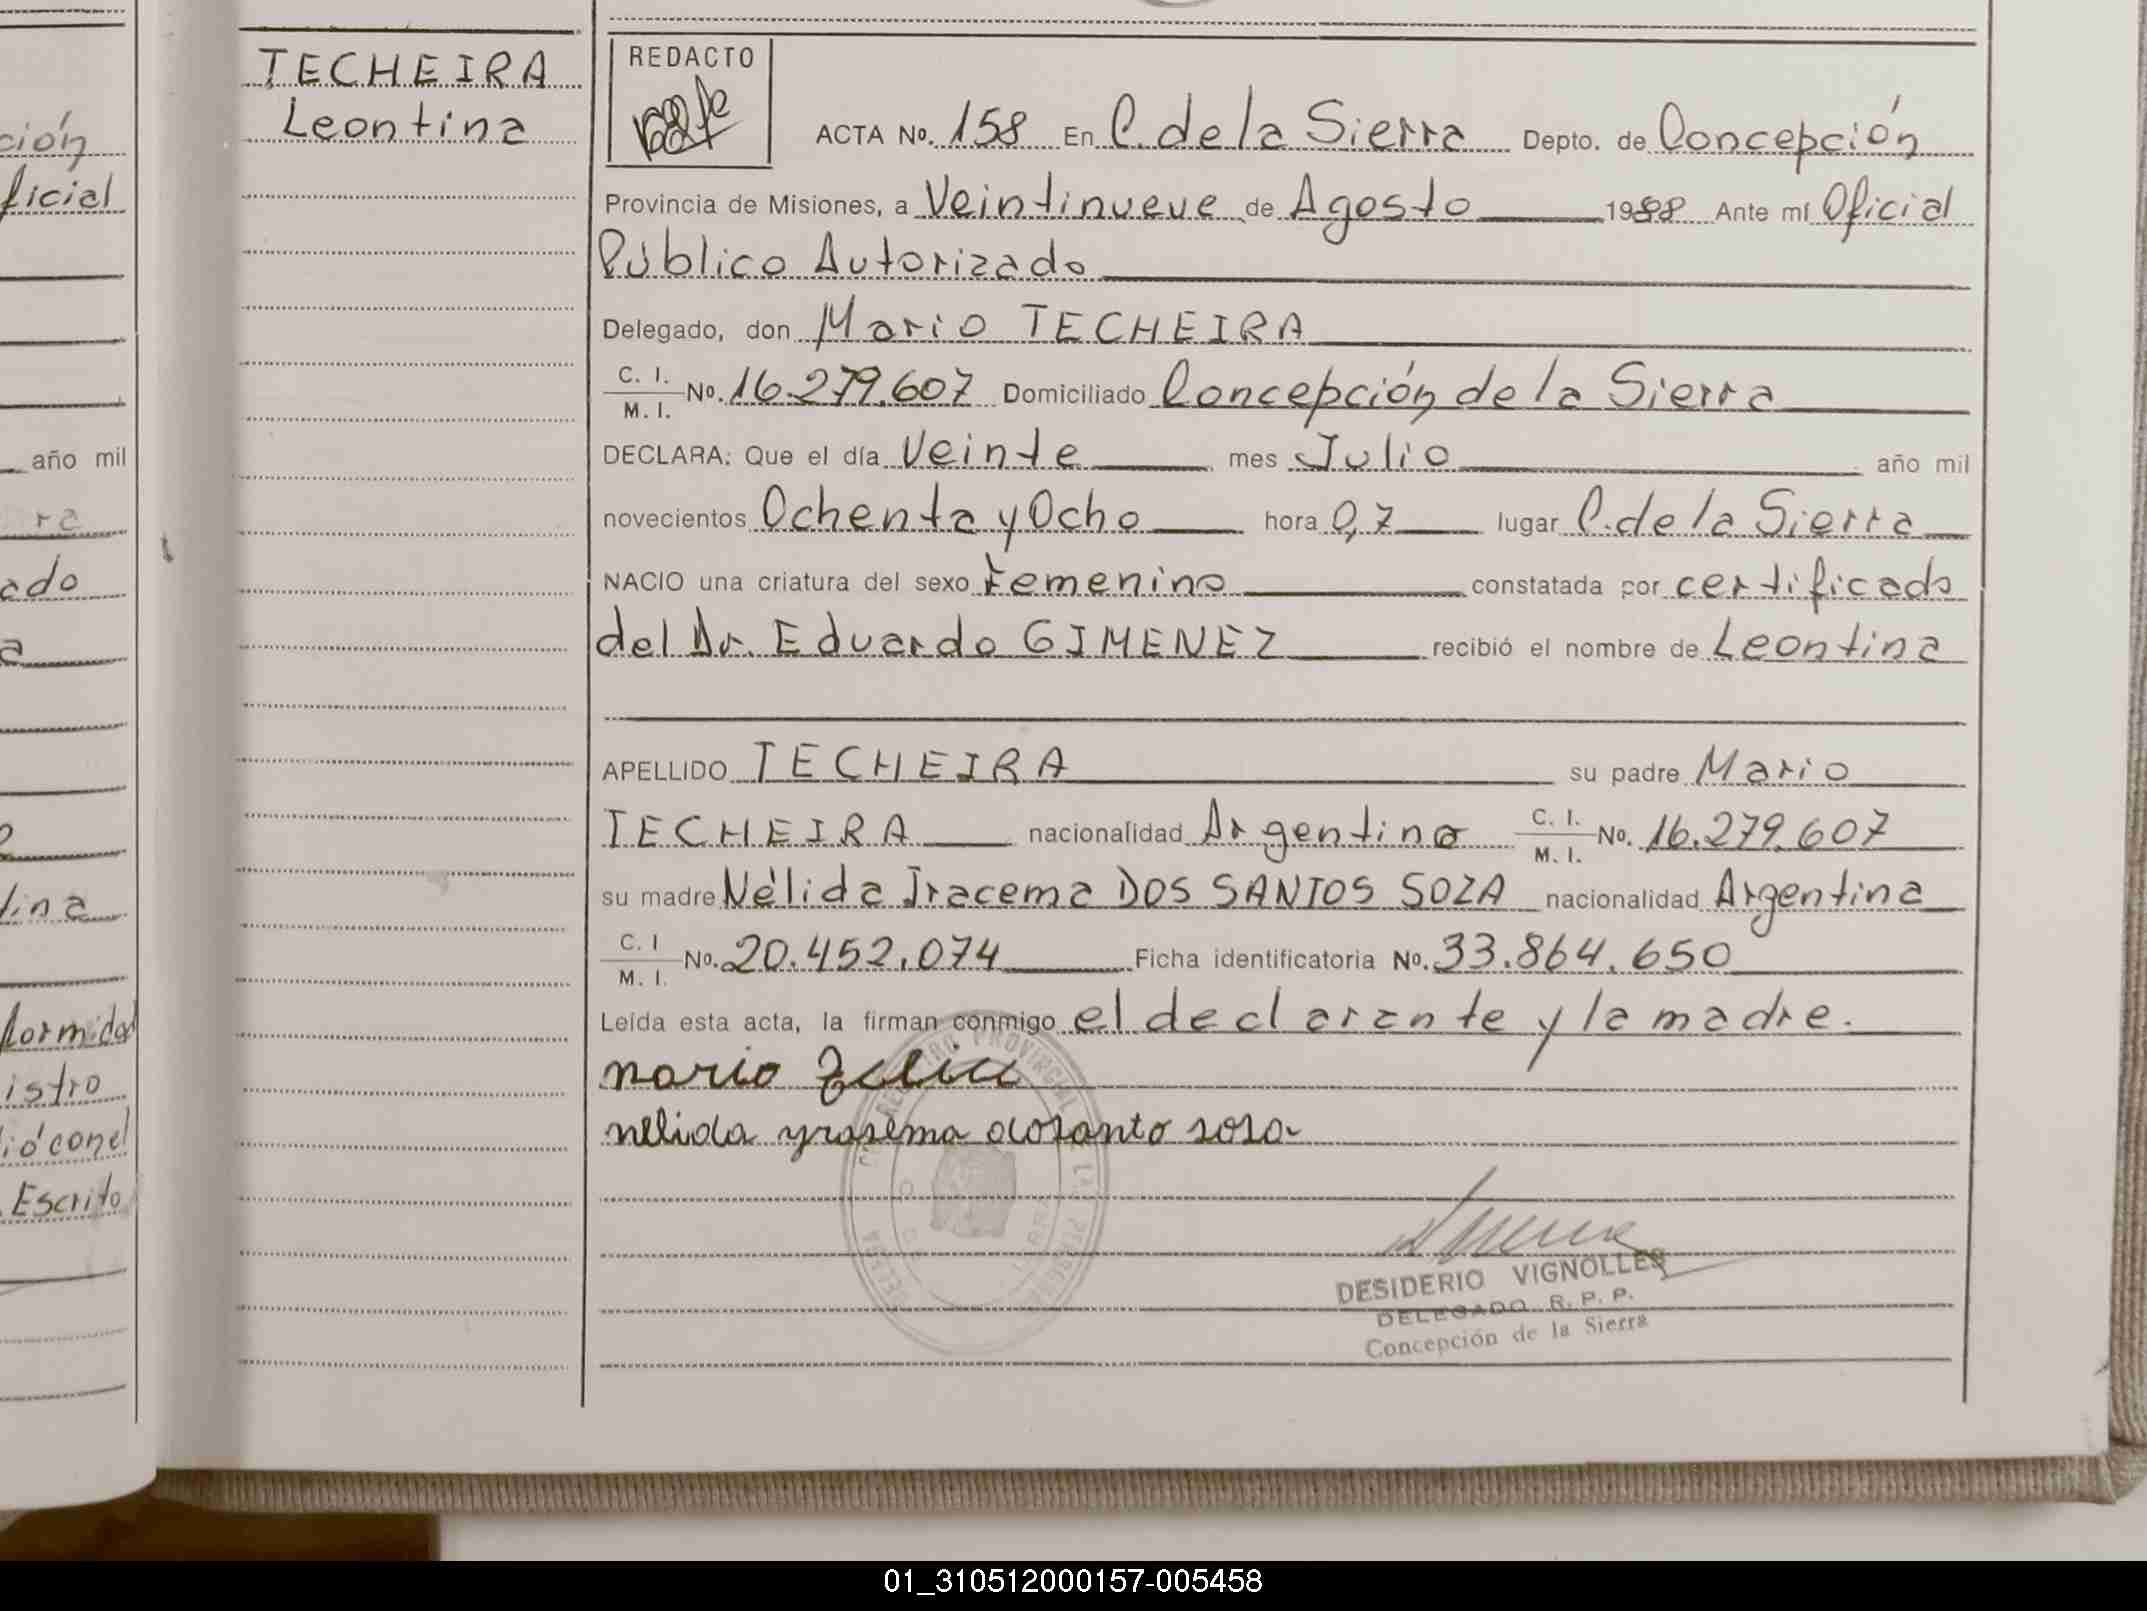 TECHEIRA
Leontina
ción
ficial
año mil
ra
ado
a
tina
formidad
istro
ió conel
Escrito
REDACTO
ACTA No. 158 En C. de la Sierra Depto. de Concepción
Provincia de Misiones, a Veintinueve de Agosto 1988 Ante mí Oficial
Público Autorizado
Delegado, don Mario TECHEIRA
C. I. M. I. No. 16.279.607 Domiciliado Concepción de la Sierra
DECLARA: Que el día Veinte mes Julio año mil
novecientos Ochenta y Ocho hora 0,7 lugar C. de la Sierra
NACIO una criatura del sexo Femenino constatada por certificado
del Dr. Eduardo GIMENEZ recibió el nombre de Leontina
APELLIDO TECHEIRA su padre Mario
TECHEIRA nacionalidad Argentino C. I. M. I. No. 16.279.607
su madre Nélida Iracema DOS SANTOS SOZA nacionalidad Argentina
C. I M. I. No. 20.452.074 Ficha identificatoria No. 33.864.650
Leída esta acta, la firman conmigo el declarante y la madre.
mario
nelida yrasema dosanto sosa
REGISTRO PROVINCIAL DE LAS PERSONAS
DESIDERIO VIGNOLLES
DELEGADO R. P. P.
Concepción de la Sierra
01_310512000157-005458